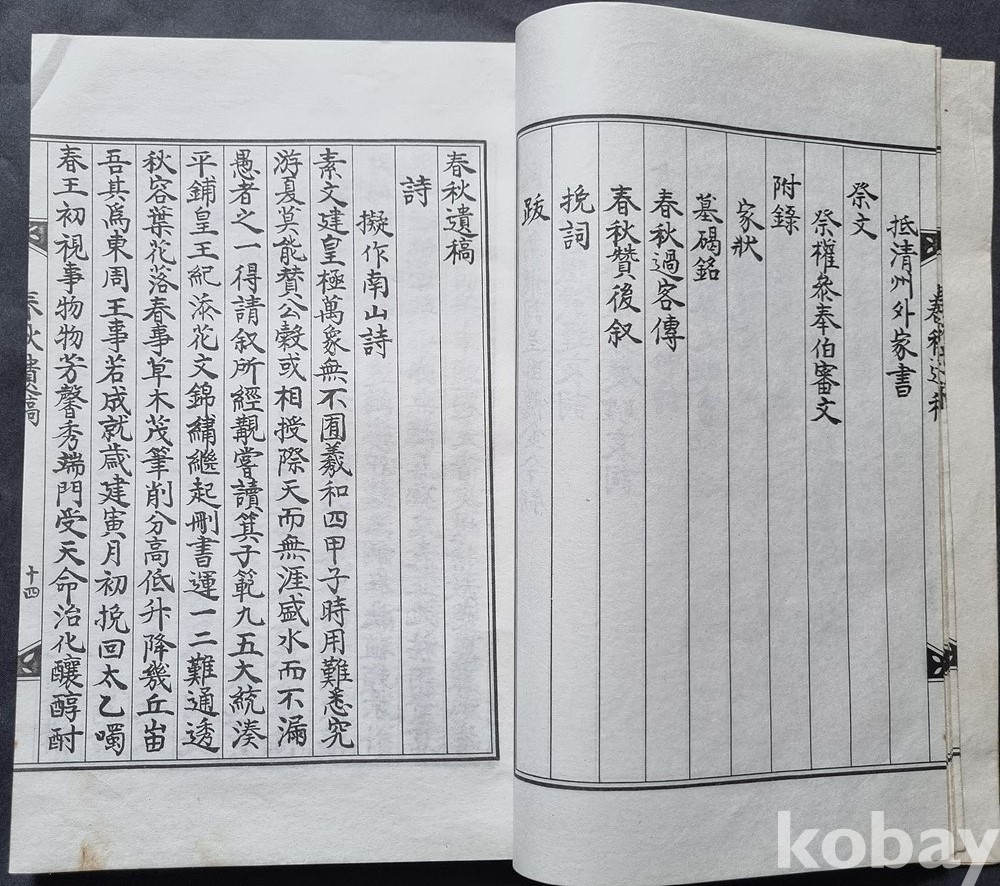 抵清州外家書
祭文
祭權參奉伯審文
附錄
家狀
墓碣銘
春秋過客傳
春秋贊後叙
挽詞
跋
春秋遺稿
詩
擬作南山詩
素文建皇極萬象無不囿羲和四甲子時用難悉究
游夏莫能贊公穀或相授際天而無涯盛水而不漏
愚者之一得請叙所經覯嘗讀箕子範九五大統湊
平鋪皇王紀添花文錦繡繼起刪書運一二難通透
秋容葉花落春事草木茂筆削分高低升降幾丘峀
吾其爲東周王事若成就歲建寅月初挽回太乙噣
春王初視事物物芳馨秀端門受天命治化釀醇酎
春秋遺稿
十四
kobay